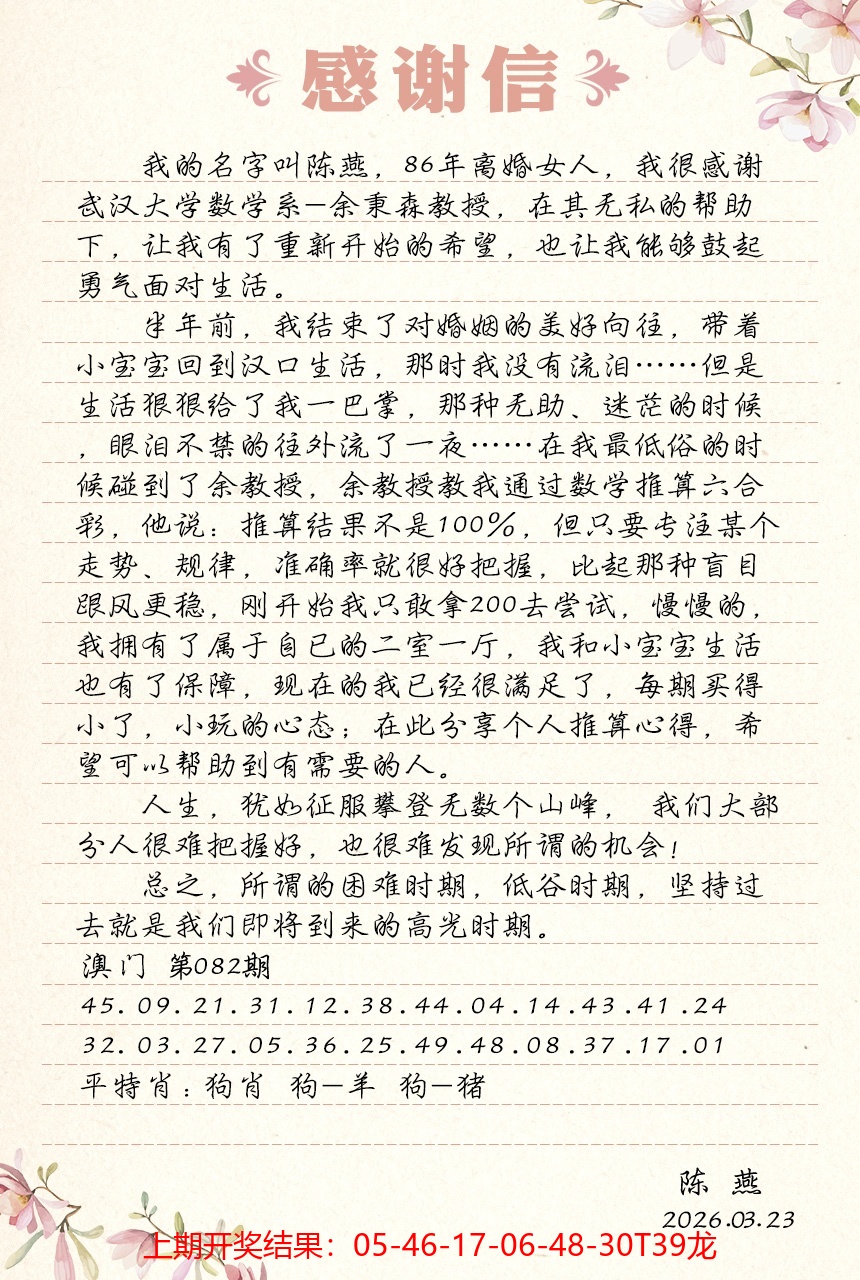 感谢信
我的名字叫陈燕，86年离婚女人，我很感谢
武汉大学数学系—余秉森教授，在其无私的帮助
下，让我有了重新开始的希望，也让我能够鼓起
勇气面对生活。
半年前，我结束了对婚姻的美好向往，带着
小宝宝回到汉口生活，那时我没有流泪……但是
生活狠狠给了我一巴掌，那种无助、迷茫的时候
，眼泪不禁的往外流了一夜……在我最低俗的时
候碰到了余教授，余教授教我通过数学推算六合
彩，他说：推算结果不是100%，但只要专注某个
走势、规律，准确率就很好把握，比起那种盲目
跟风更稳，刚开始我只敢拿200去尝试，慢慢的，
我拥有了属于自已的二室一厅，我和小宝宝生活
也有了保障，现在的我已经很满足了，每期买得
小了，小玩的心态；在此分享个人推算心得，希
望可以帮助到有需要的人。
人生，犹如征服攀登无数个山峰， 我们大部
分人很难把握好，也很难发现所谓的机会！
总之，所谓的困难时期，低谷时期，坚持过
去就是我们即将到来的高光时期。
澳门 第082期
45.09.21.31.12.38.44.04.14.43.41.24
32.03.27.05.36.25.49.48.08.37.17.01
平特肖：狗肖 狗—羊 狗—猪
陈 燕
2026.03.23
上期开奖结果：05-46-17-06-48-30T39龙